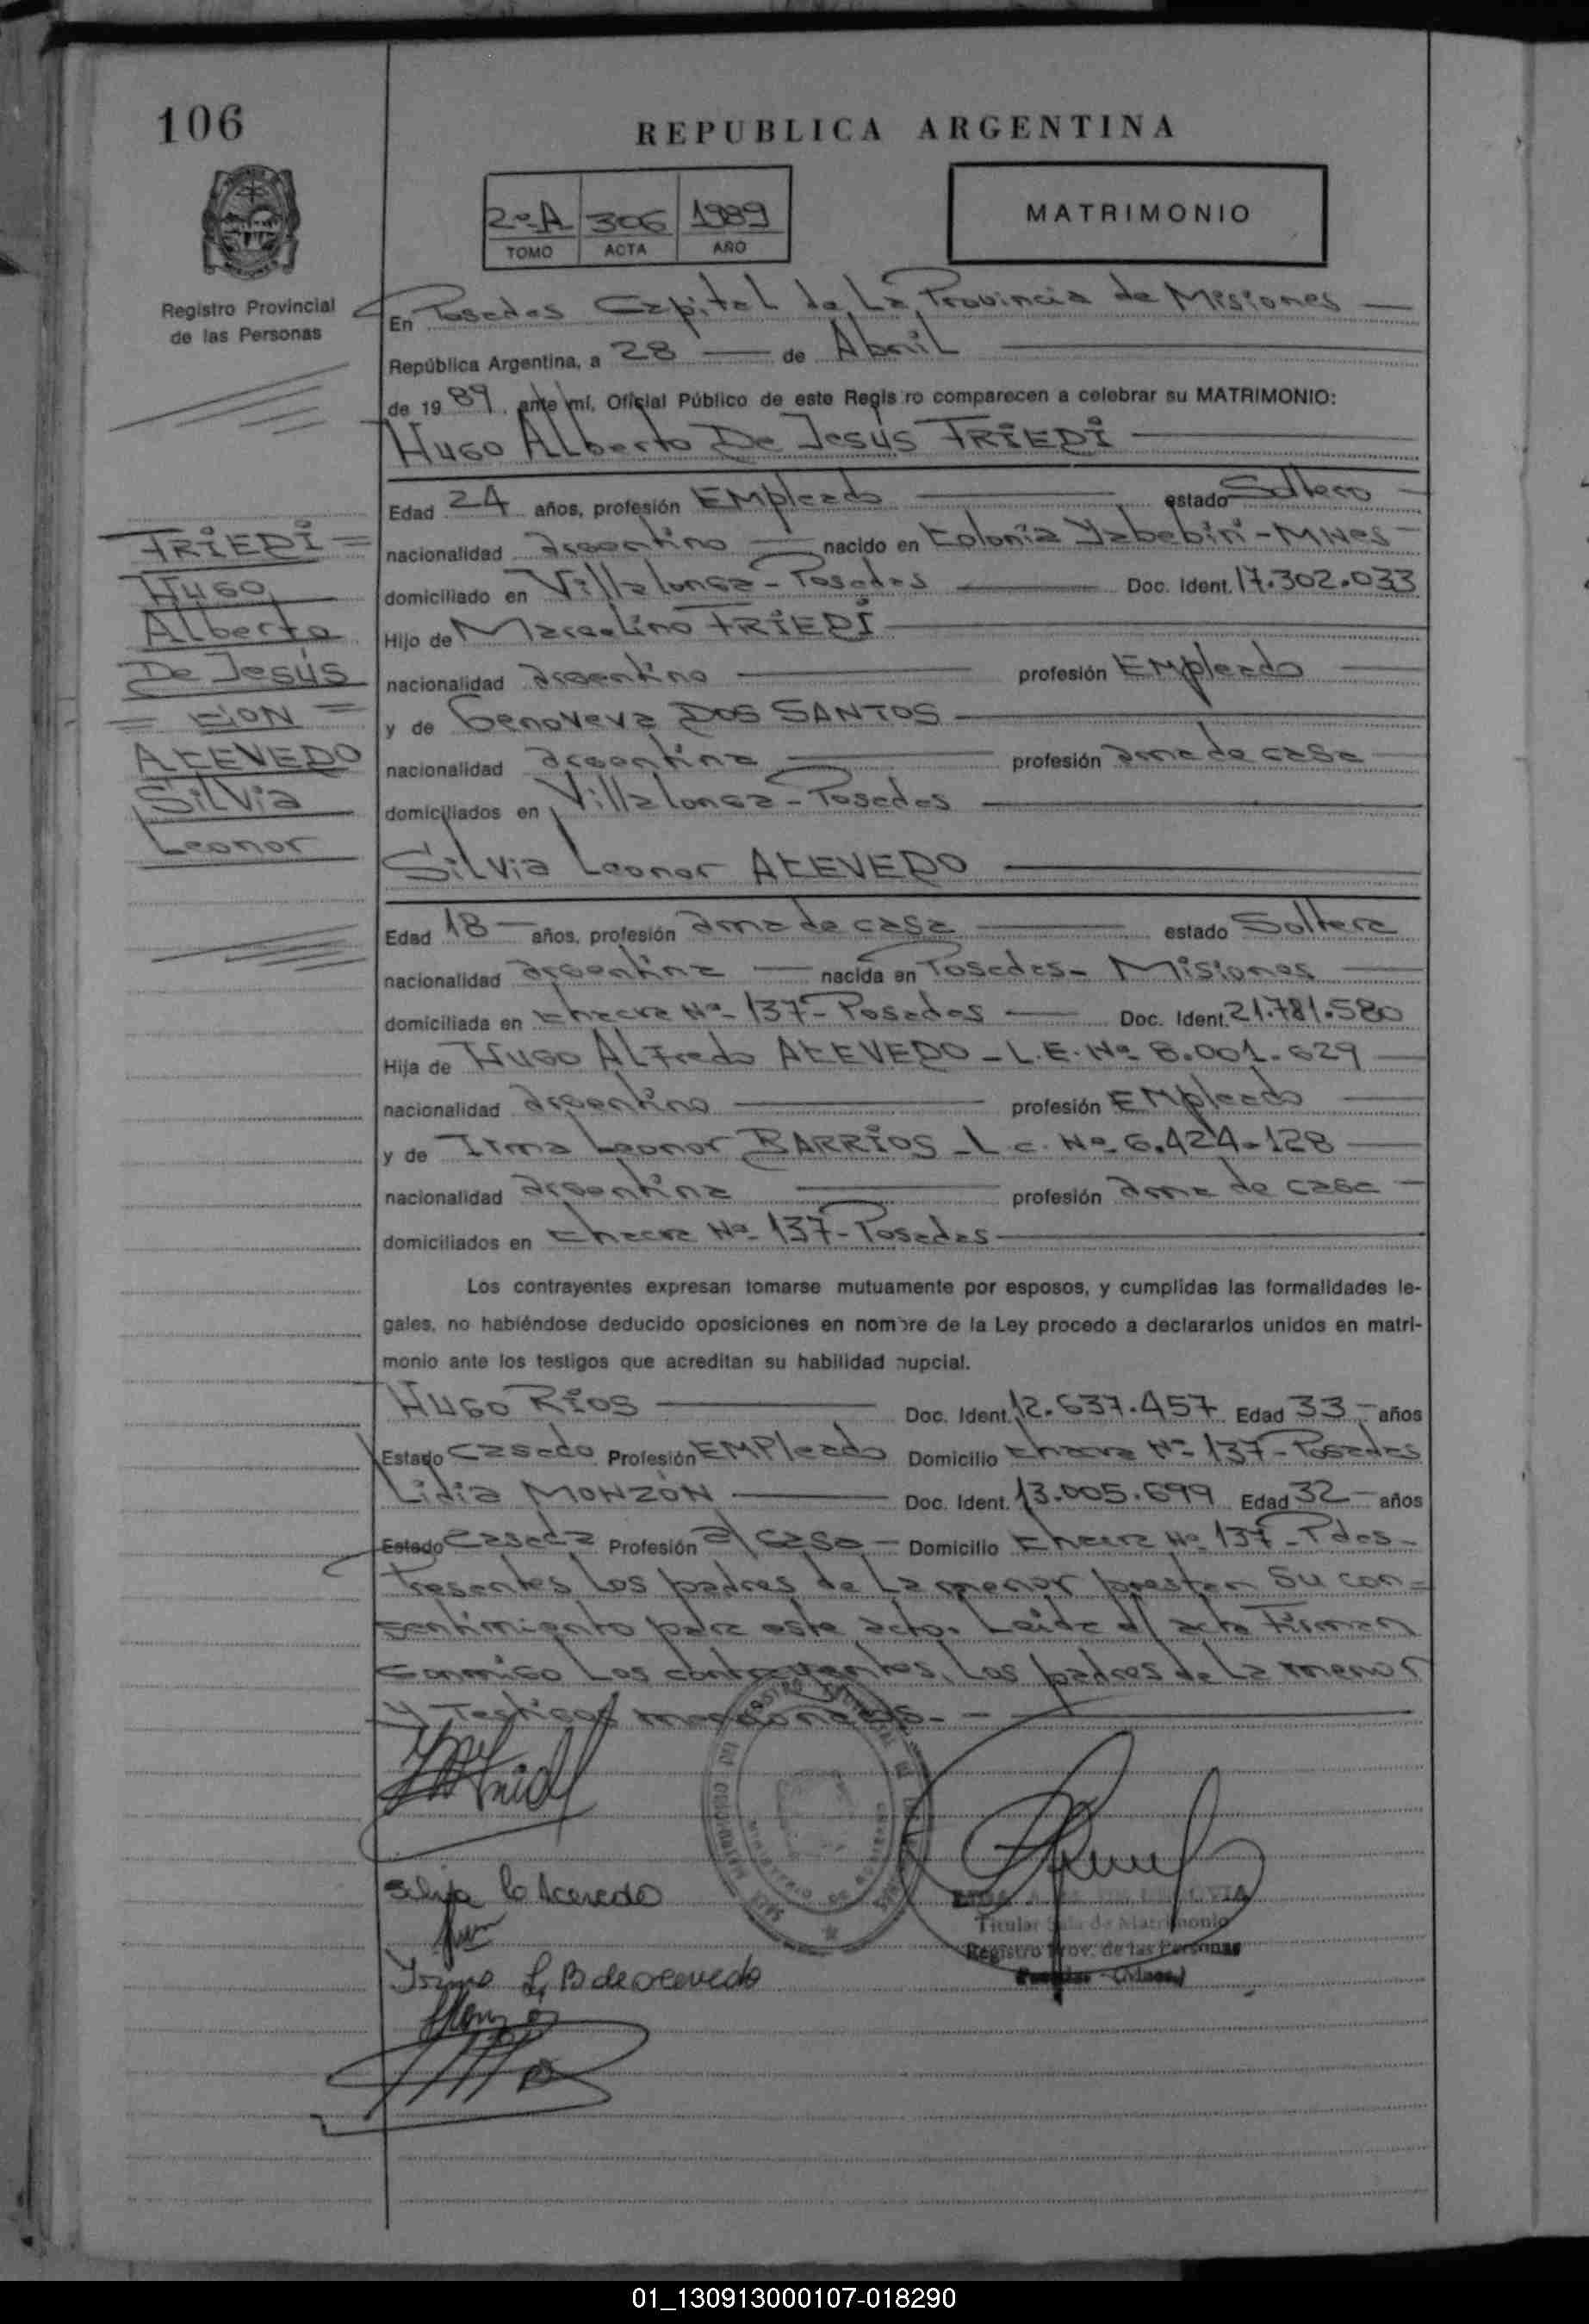 106
REPUBLICA ARGENTINA
2º A 306 1989
TOMO ACTA AÑO
MATRIMONIO
Registro Provincial
de las Personas
En Posadas Capital de La Provincia de Misiones
República Argentina, a 28 de Abril
de 1989, ante mí, Oficial Público de este Registro comparecen a celebrar su MATRIMONIO:
Hugo Alberto De Jesús FRIEDI
Edad 24 años, profesión Empleado estado Soltero
nacionalidad argentino nacido en Colonia Yabebiri-Mnes-
domiciliado en Villalonga - Posadas Doc. Ident. 17.302.033
Hijo de Marcelino FRIEDI
nacionalidad argentino profesión Empleado
y de Genoveva DOS SANTOS
nacionalidad argentina profesión ama de casa
domiciliados en Villalonga - Posadas
Silvia Leonor ACEVEDO
Edad 18 años, profesión ama de casa estado Soltera
nacionalidad argentina nacida en Posadas- Misiones
domiciliada en Chacra Nº 137- Posadas Doc. Ident. 21.781.580
Hija de Hugo Alfredo ACEVEDO - L.E. Nº 8.001.629
nacionalidad argentino profesión Empleado
y de Irma Leonor BARRIOS - L.C. Nº 6.424.128
nacionalidad argentina profesión ama de casa
domiciliados en Chacra Nº 137- Posadas
Los contrayentes expresan tomarse mutuamente por esposos, y cumplidas las formalidades le-
gales, no habiéndose deducido oposiciones en nombre de la Ley procedo a declararlos unidos en matri-
monio ante los testigos que acreditan su habilidad nupcial.
Hugo RIOS Doc. Ident. 12.637.457 Edad 33 años
Estado Casado Profesión Empleado Domicilio Chacra Nº 137- Posadas
Lidia MONZON Doc. Ident. 13.005.699 Edad 32 años
Estado Casada Profesión a/ casa Domicilio Chacra Nº 137- Pdas-
Presentes Los padres de La menor prestan Su con-
sentimiento para este acto. Leída el acta Firman
conmigo Los contrayentes, Los padres de La menor
y Testigos mencionados.
FRIEDI
Hugo
Alberto
De Jesús
= CON =
ACEVEDO
Silvia
Leonor
Silvia L Acevedo
Irma L. B de Acevedo
Titular Sala de Matrimonio
Registro Prov. de las Personas
01_130913000107-018290